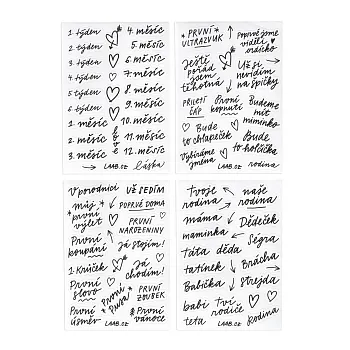 1 týden
2 týden
3 týden
4 týden
5 týden
6 týden
1. měsíc
2. měsíc
3. měsíc
love
4. měsíc
5. měsíc
6. měsíc
7. měsíc
8. měsíc
9. měsíc
10. měsíc
11. měsíc
12. měsíc
LAAB.CZ
láska
PRVNÍ
ULTRAZVUK
Poprvé jsme
viděli
srdíčko
Ještě
pořád
jsem
těhotná
Už si
nevidím
na špičky
PŘILETÍ
ČÁP
První
kopnutí
Budeme
mít
miminko
Bude
to chlapeček
Bude
to holčička
Vybíráme
jména
LAAB.CZ
rodina
V porodnici
VŽ SEDÍM
Můj
první
výlet
POPRVÉ DOMA
PRVNÍ
NAROZENINY
První
koupání
Já stojím!
1 Krůček
Já
chodím!
První
slovo
První
pusa
PRVNÍ
ZOUBEK
První
úsměv
První
vánoce
LAAB.CZ
Tvoje
rodina
naše
rodina
máma
maminka
Dědeček
Ségra
táta
děda
tatínek
Brácha
Babička
Strejda
babi
teta
Tví
rodiče
rodina
LAAB.CZ